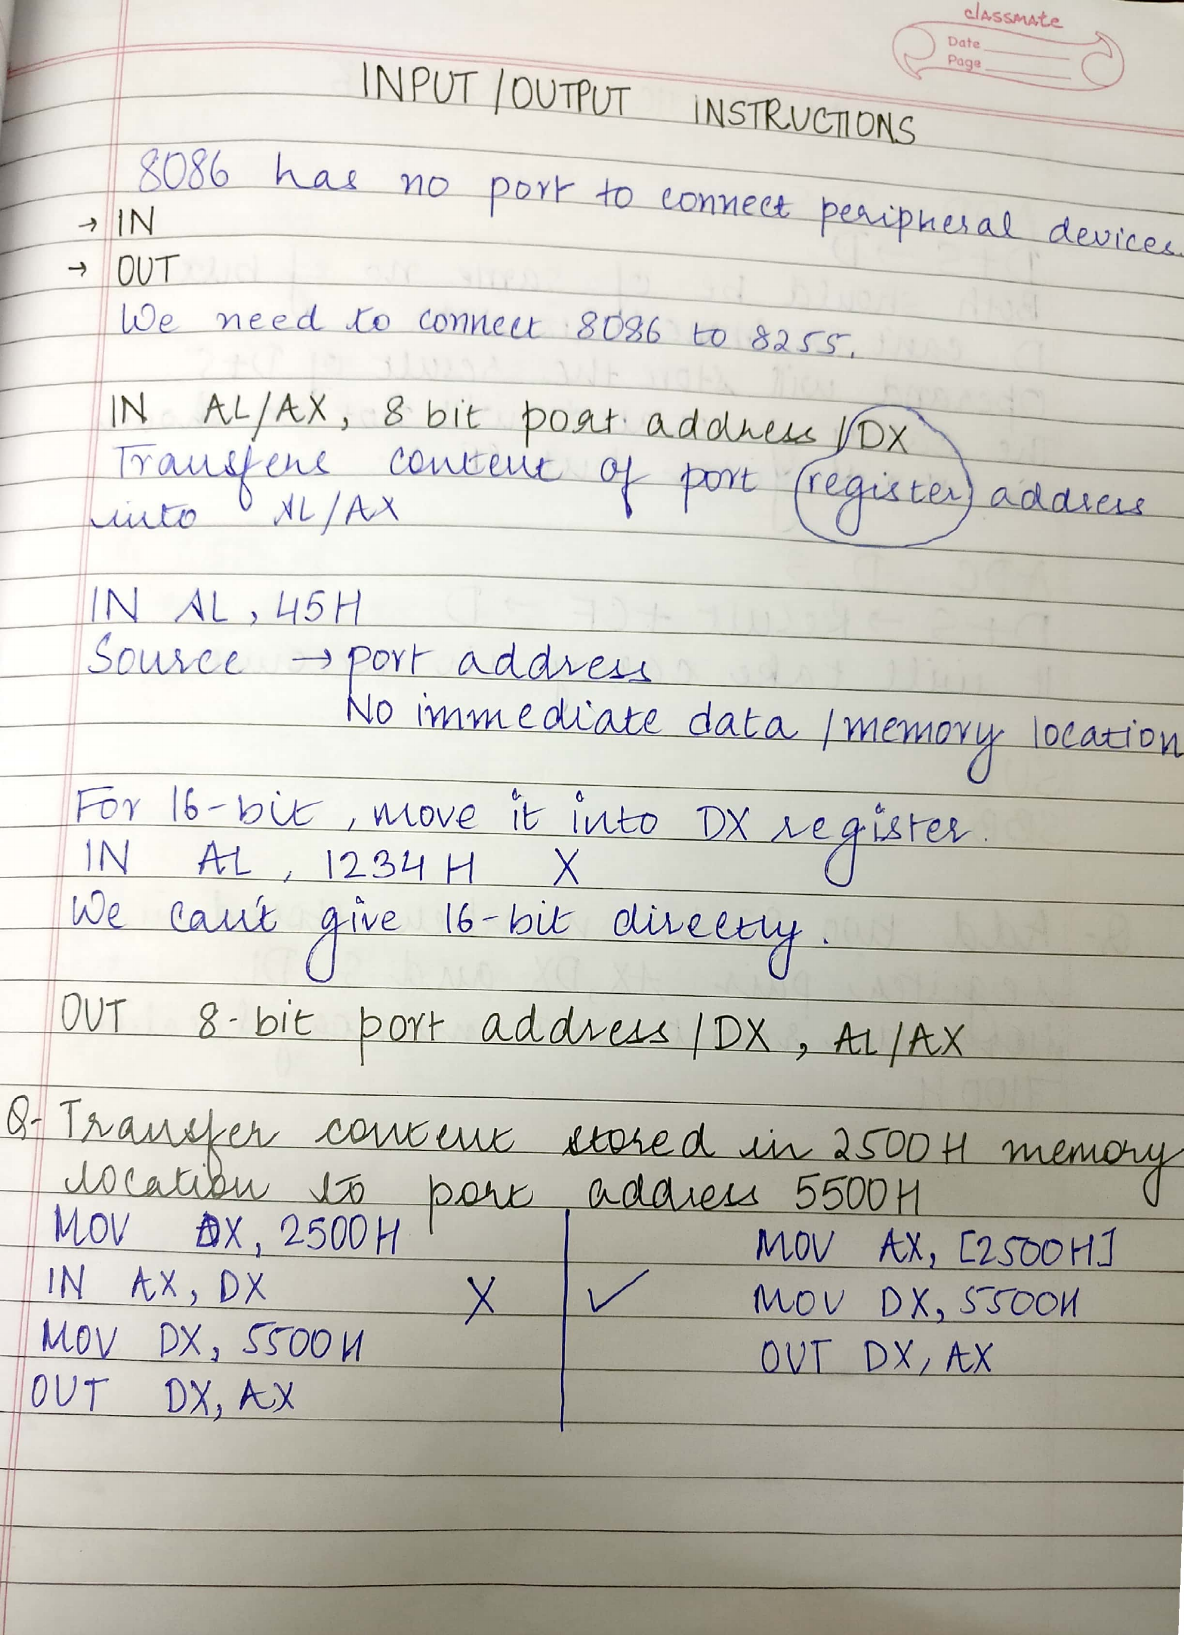 classmate
Date
Page
INPUT/OUTPUT INSTRUCTIONS
8086 has no port to connect peripheral devices.
→ IN
→ OUT
We need to connect 8086 to 8255.
IN AL/AX, 8 bit port address /DX
Transfers content of port register address
into AL/AX
IN AL, 45H
Source → port address
No immediate data /memory location
For 16-bit, move it into DX register.
IN AL, 1234H X
We can't give 16-bit directly.
OUT 8-bit port address/DX, AL/AX
Q- Transfer content stored in 2500H memory
location to port address 5500H
MOV DX, 2500H
IN AX, DX X
MOV DX, 5500H
OUT DX, AX
MOV AX, [2500H]
✓ MOV DX, 5500H
OUT DX, AX